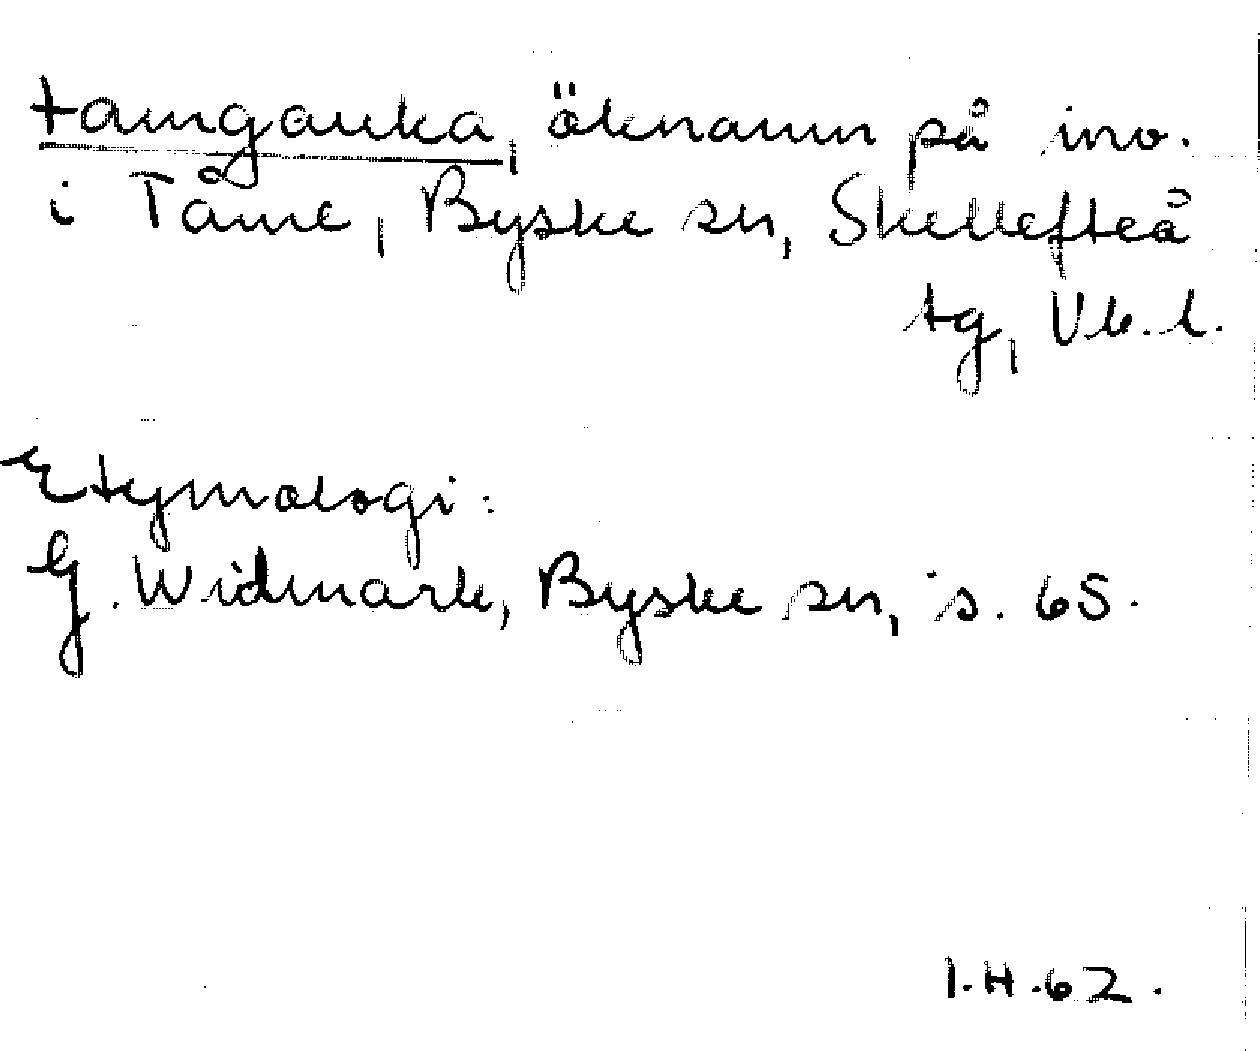 tamgauka, öknamn på inv.
i Tåme, Byske sn, Skellefteå
tg, Vb. l.
Etymologi:
G. Widmark, Byske sn, s. 65.
I.H.62.